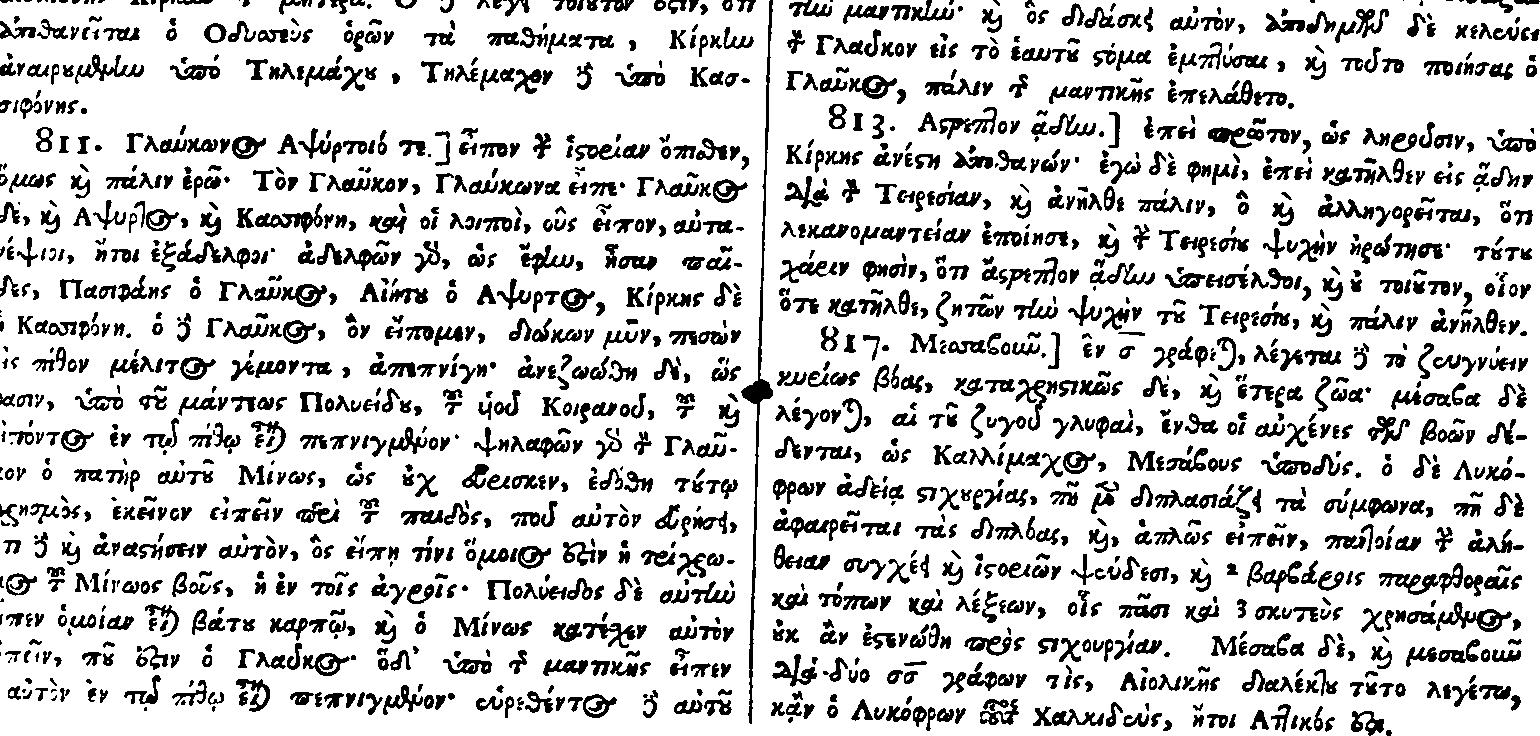 ἀποθανεῖται ὁ Ὀδυσσεὺς ὁρῶν τὰ παθήματα, Κίρκην
ἀναιρουμένην ὑπὸ Τηλεμάχου, Τηλέμαχον δὲ ὑπὸ Κασ-
σιφόνης.
811. Γλαύκωνος Αψύρτοιό τε.] εἶπον τὴν ἱστορίαν ὄπισθεν,
ὅμως καὶ πάλιν ἐρῶ· Τὸν Γλαῦκον, Γλαύκωνα εἶπε· Γλαῦκος
δὲ, καὶ Αψυρτος, καὶ Κασσιφόνη, καὶ οἱ λοιποὶ, οὓς εἶπον, αὐτα-
νέψιοι, ἤτοι ἐξάδελφοι· ἀδελφῶν γὰρ, ὡς ἔφην, ἦσαν παῖ-
δες, Πασιφάης ὁ Γλαῦκος, Αἰήτου ὁ Αψυρτος, Κίρκης δὲ
ἡ Κασσιφόνη. ὁ δὲ Γλαῦκος, ὃν εἴπομεν, διώκων μῦν, πεσὼν
εἰς πίθον μέλιτος γέμοντα, ἀπεπνίγη· ἀνεζωώθη δὲ, ὥς
φασιν, ὑπὸ τοῦ μάντεως Πολυείδου, τοῦ υἱοῦ Κοιρανοῦ, τοῦ καὶ
εἰπόντος ἐν τῷ πίθῳ εἶναι πεπνιγμένον· ψηλαφῶν γὰρ τὸν Γλαῦ-
κον ὁ πατὴρ αὐτοῦ Μίνως, ὡς οὐχ εὕρισκεν, ἐδόθη τούτῳ
χρησμὸς, ἐκεῖνον εἰπεῖν περὶ τοῦ παιδὸς, ποῦ αὐτὸν εὑρήσει,
ἔτι δὲ καὶ ἀναστήσειν αὐτὸν, ὃς εἴπῃ τίνι ὅμοιος ἐστὶν ἡ τρίχρω-
μος τοῦ Μίνωος βοῦς, ἡ ἐν τοῖς ἀγροῖς· Πολύειδος δὲ αὐτὴν
εἶπεν ὁμοίαν εἶναι βάτου καρπῷ, καὶ ὁ Μίνως κατέχεν αὐτὸν
εἰπεῖν, ποῦ ἐστιν ὁ Γλαῦκος· ὅδ' ὑπὸ τῆς μαντικῆς εἶπεν
αὐτὸν ἐν τῷ πίθῳ εἶναι πεπνιγμένον· εὑρεθέντος δὲ αὐτοῦ
τὴν μαντικήν· καὶ ὃς διδάσκει αὐτὸν, ἀποδημῶν δὲ κελεύει
τὸν Γλαῦκον εἰς τὸ ἑαυτοῦ στόμα ἐμπτύσαι, καὶ τοῦτο ποιήσας ὁ
Γλαῦκος, πάλιν τῆς μαντικῆς ἐπελάθετο.
813. Αστρεπτον ᾅδην.] ἐπεὶ πρῶτον, ὡς ληροῦσιν, ὑπὸ
Κίρκης ἀνέστη ἀποθανών· ἐγὼ δὲ φημὶ, ἐπεὶ κατῆλθεν εἰς ᾅδην
διὰ τὸν Τειρεσίαν, καὶ ἀνῆλθε πάλιν, ὃ καὶ ἀλληγορεῖται, ὅτι
λεκανομαντείαν ἐποίησε, καὶ τὴν Τειρεσίου ψυχὴν ἠρώτησε· τούτου
χάριν φησὶν, ὅτι ἄστρεπτον ᾅδην ὑπεισέλθοι, καὶ οὐ τοιοῦτον, οἷον
ὅτε κατῆλθε, ζητῶν τὴν ψυχὴν τοῦ Τειρεσίου, καὶ πάλιν ἀνῆλθεν.
817. Μεσσαβοῦν.] ἓν σ γράφεται, λέγεται δὲ τὸ ζευγνύειν
κυρίως βόας, καταχρηστικῶς δὲ, καὶ ἕτερα ζῶα· μέσαβα δὲ
λέγονται, αἱ τοῦ ζυγοῦ γλυφαὶ, ἔνθα οἱ αὐχένες τῶν βοῶν δέ-
δενται, ὡς Καλλίμαχος, Μεσάβους ὑποδύς. ὁ δὲ Λυκό-
φρων ἀδείᾳ στιχουργίας, πῆ μὲν διπλασιάζει τὰ σύμφωνα, πῆ δὲ
ἀφαιρεῖται τὰς διπλόας, καὶ, ἁπλῶς εἰπεῖν, παντοίαν τὴν ἀλή-
θειαν συγχέει καὶ ἱστοριῶν ψεύδεσι, καὶ 2 βαρβάροις παραφθοραῖς
καὶ τόπων καὶ λέξεων, οἷς πᾶσι καὶ 3 σκυτεὺς χρησάμενος,
οὐκ ἂν ἐστενώθη πρὸς στιχουργίαν. Μέσαβα δὲ, καὶ μεσαβοῦν
διὰ δύο σσ γράφων τὶς, Αἰολικῆς διαλέκτου τοῦτο λεγέτω,
κἂν ὁ Λυκόφρων Χαλκιδεὺς, ἤτοι Αττικός ἐστι.